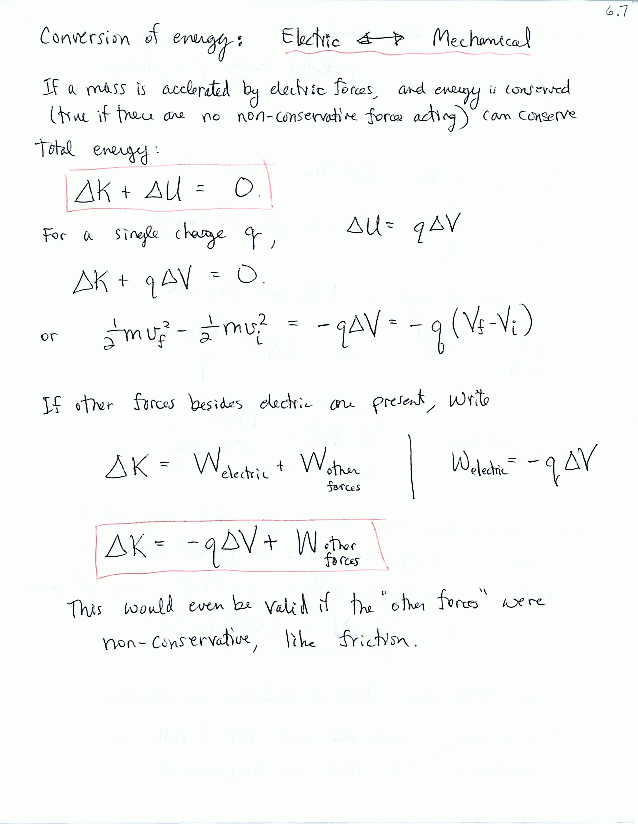 6.7
Conversion of energy: Electric ↔ Mechanical
If a mass is accelerated by electric forces, and energy is conserved
(true if there are no non-conservative forces acting) can conserve
Total energy:
ΔK + ΔU = 0.
For a single charge q, ΔU = qΔV
ΔK + qΔV = 0.
or ½mv_f² - ½mv_i² = -qΔV = -q(V_f-V_i)
If other forces besides electric are present, write
ΔK = W_electric + W_other forces | W_electric = -qΔV
ΔK = -qΔV + W_other forces
This would even be valid if the "other forces" were
non-conservative, like friction.